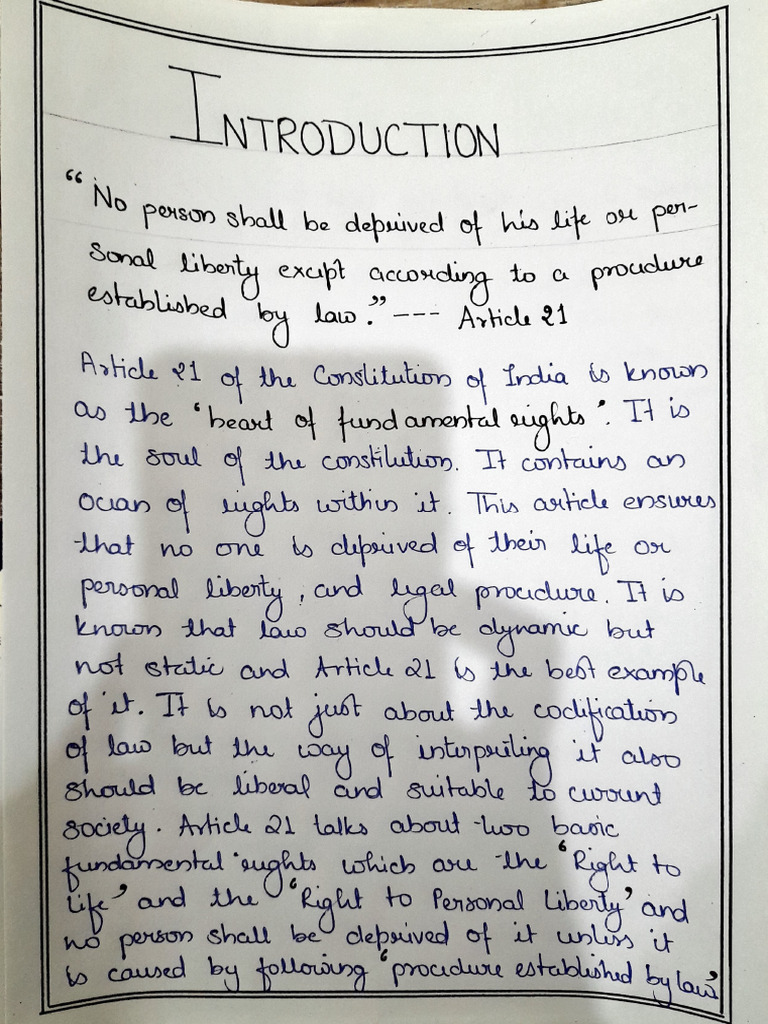 INTRODUCTION
“No person shall be deprived of his life or per-
sonal liberty except according to a procedure
established by law.” --- Article 21
Article 21 of the Constitution of India is known
as the ‘heart of fundamental rights’. It is
the soul of the constitution. It contains an
ocean of rights within it. This article ensures
that no one is deprived of their life or
personal liberty, and legal procedure. It is
known that law should be dynamic but
not static and Article 21 is the best example
of it. It is not just about the codification
of law but the way of interpreting it also
should be liberal and suitable to current
society. Article 21 talks about two basic
fundamental rights which are the ‘Right to
Life’ and the ‘Right to Personal Liberty’ and
no person shall be deprived of it unless it
is caused by following ‘procedure established by law’